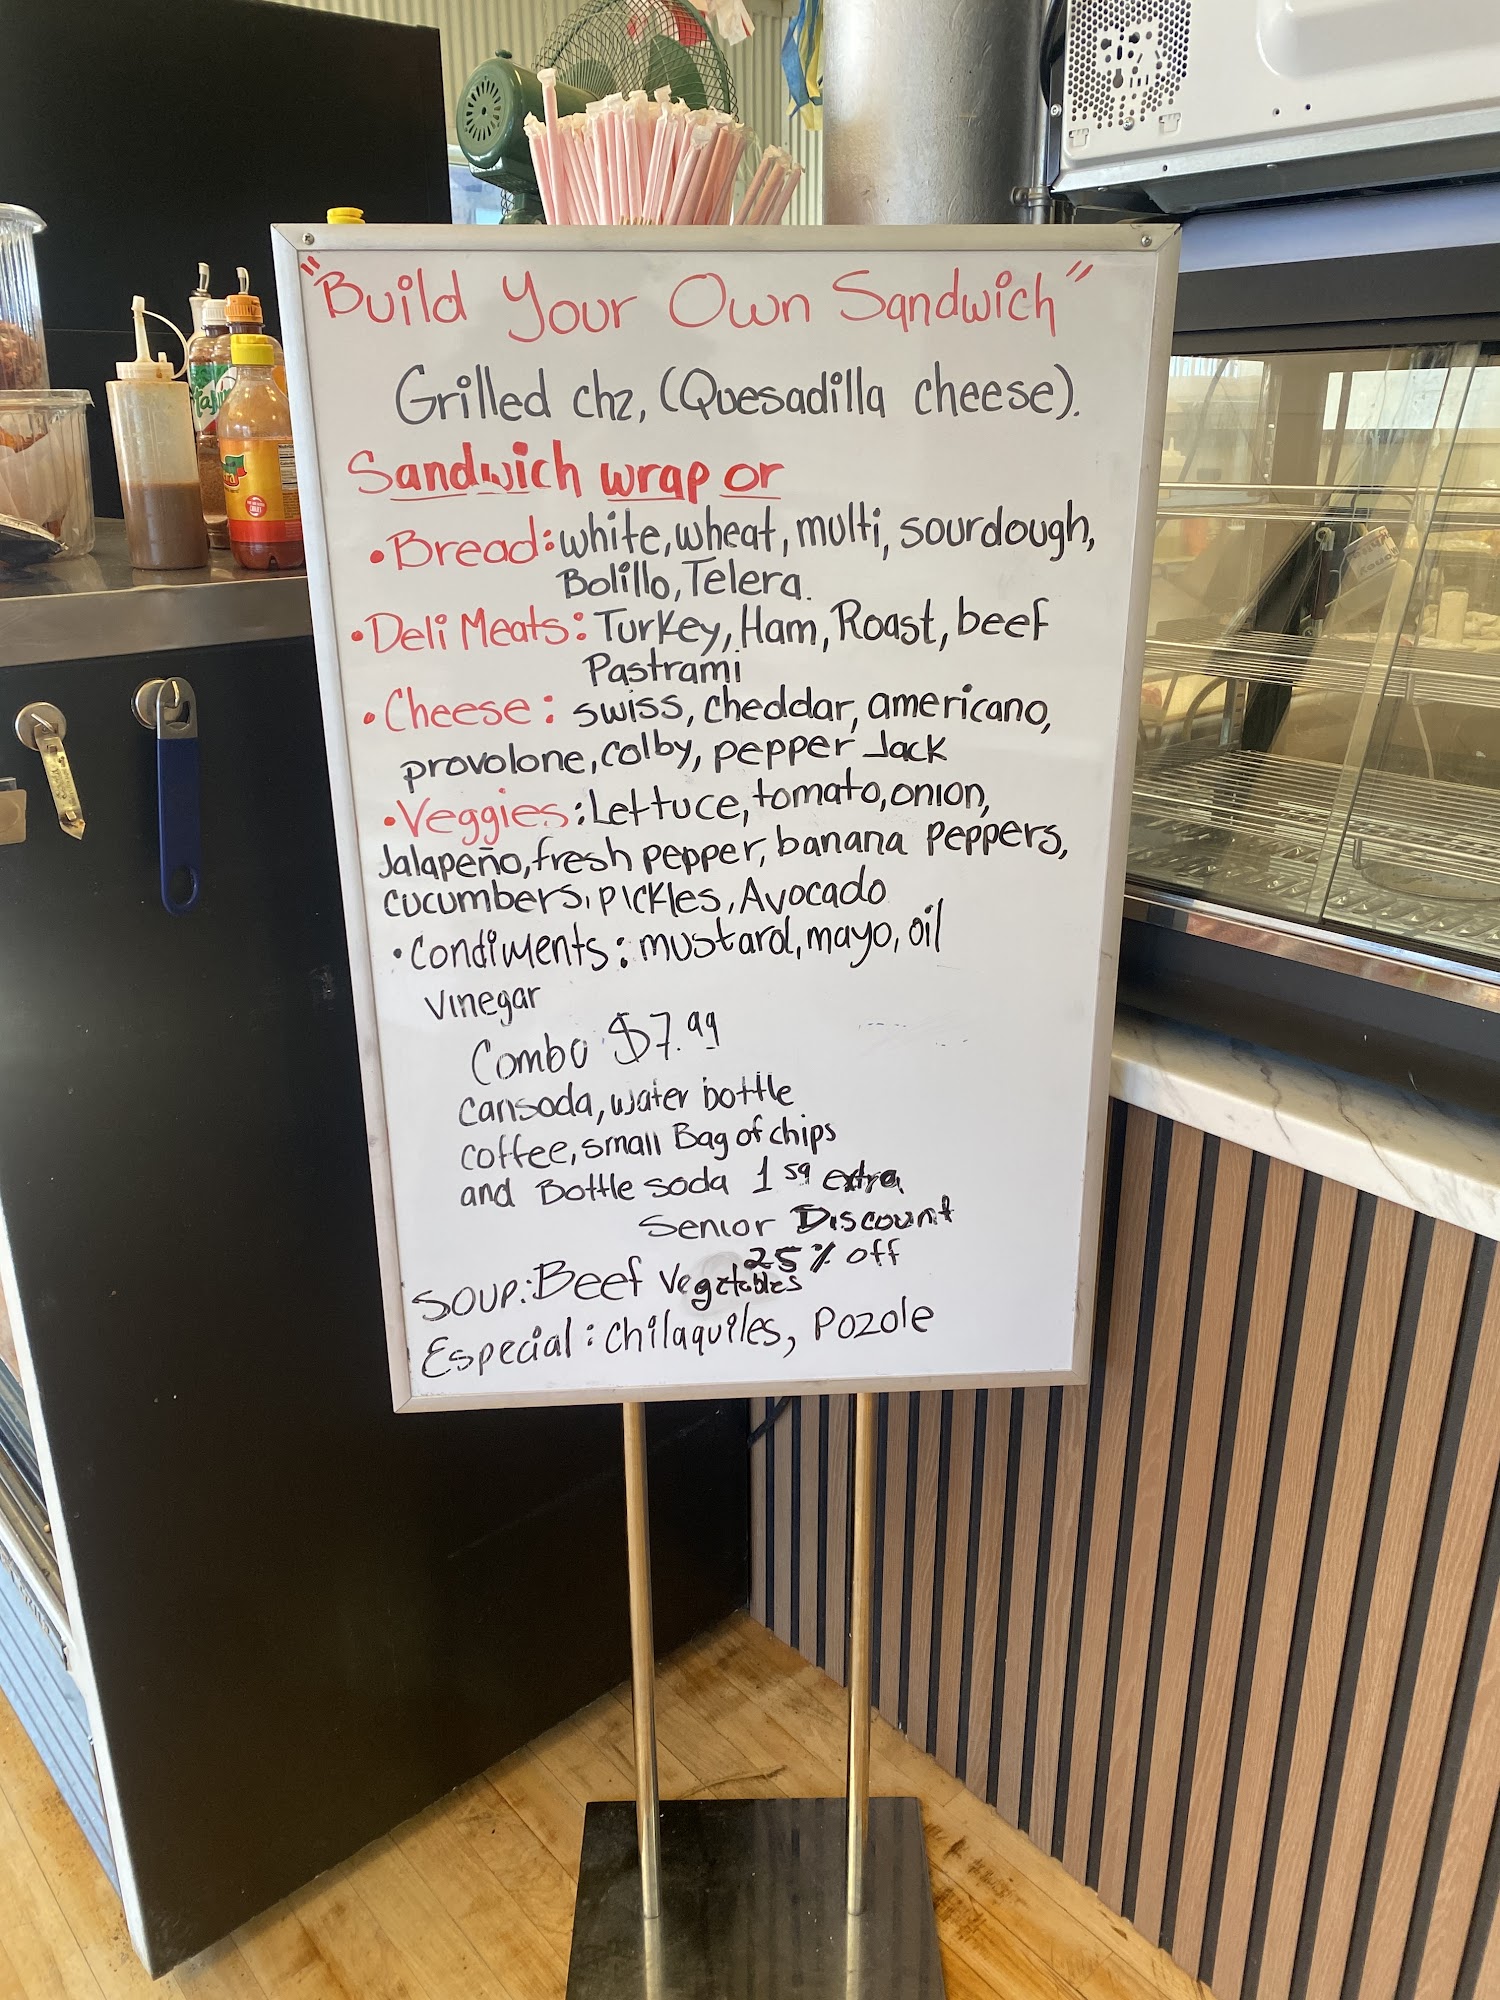 "Build Your Own Sandwich"
Grilled chz, (Quesadilla cheese).
Sandwich wrap or
•Bread: white, wheat, multi, sourdough,
Bolillo, Telera.
•Deli Meats: Turkey, Ham, Roast, beef
Pastrami
•Cheese: swiss, cheddar, americano,
provolone, colby, pepper Jack
•Veggies: Lettuce, tomato, onion,
Jalapeño, fresh pepper, banana peppers,
cucumbers, pickles, Avocado
•Condiments: mustard, mayo, oil
vinegar
Combo $7.99
cansoda, water bottle
coffee, small Bag of chips
and Bottle soda 1 59 extra
Senior Discount
25% off
Soup: Beef Vegetables
Especial: Chilaquiles, Pozole